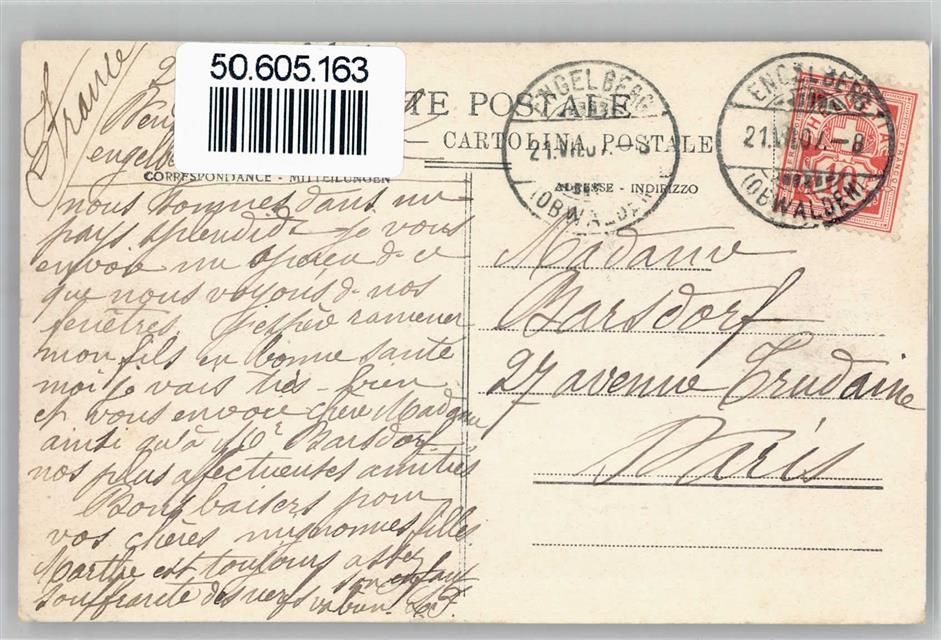 France
50.605.163
TE POSTALE
CARTOLINA POSTALE
CORRESPONDANCE - MITTEILUNGEN
ADRESSE - INDIRIZZO
ENGELBERG
21.VII.07.-8
(OBWALDEN)
ENGELBERG
21.VII.07.-8
(OBWALDEN)
engelbe
nous sommes dans un
pays splendide je vous
envoie un aperçu de ce
que nous voyons de nos
fenêtres. J'espère ramener
mon fils en bonne santé
moi je vais très-bien
et vous envoie chère Madame
ainsi qu'à Mr Barsdorf
nos plus afectueuses amitiés
Bons baisers pour
vos chères mignonnes filles
Marthe est toujours assez
souffrante des nerfs son enfant
va bien.
Madame
Barsdorf
27 avenue Trudaine
Paris